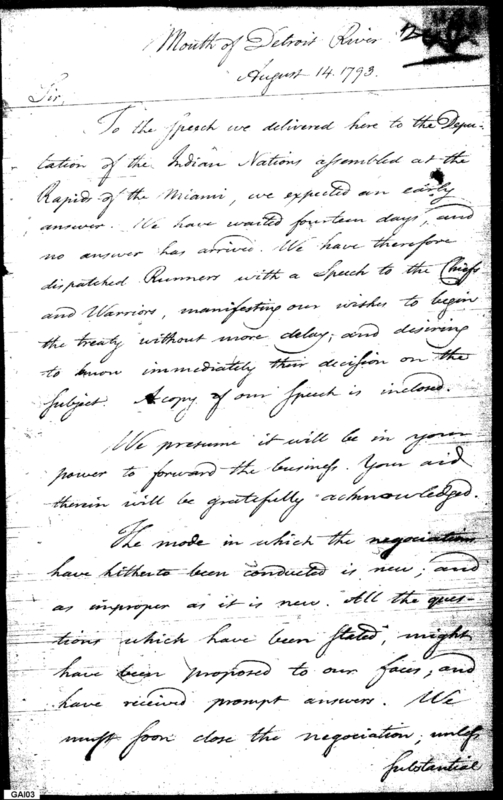 Mouth of Detroit River
August 14. 1793.
Sir,
To the speech we delivered here to the Depu-
tation of the Indian Nations assembled at the
Rapids of the Miami, we expected an early
answer. We have waited fourteen days, and
no answer has arrived. We have therefore
dispatched Runners with a Speech to the Chiefs
and Warriors, manifesting our wishes to begin
the treaty without more delay; and desiring
to know immediately their decision on the
subject. A copy of our speech is inclosed.
We presume it will be in your
power to forward the business. Your aid
therein will be gratefully acknowledged.
The mode in which the negociations
have hitherto been conducted is new; and
as improper as it is new. All the ques-
tions which have been stated, might
have been proposed to our faces, and
have received prompt answers. We
must soon close the negociation, unless
substantial
GAI03